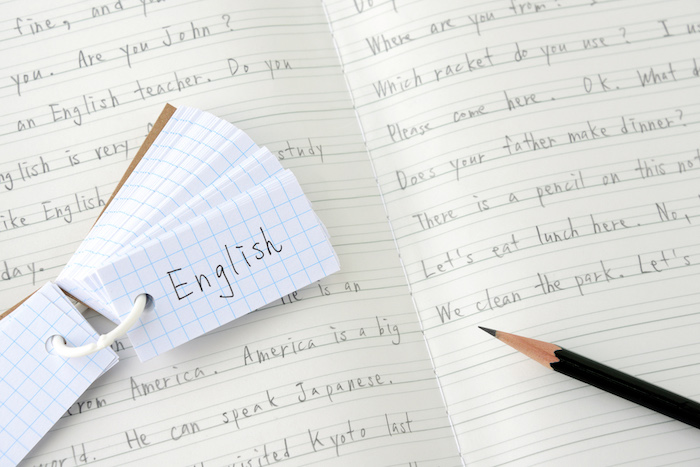 fine, and you
you. Are you John?
an English teacher. Do you
English is very
study
like English
day.
He is an
from America. America is a big
world. He can speak Japanese.
visited Kyoto last
English
Do
Where are you from?
Which racket do you use? I
Please come here. OK. What
Does your father make dinner?
There is a pencil on this
Let's eat lunch here. No,
We clean the park. Let's